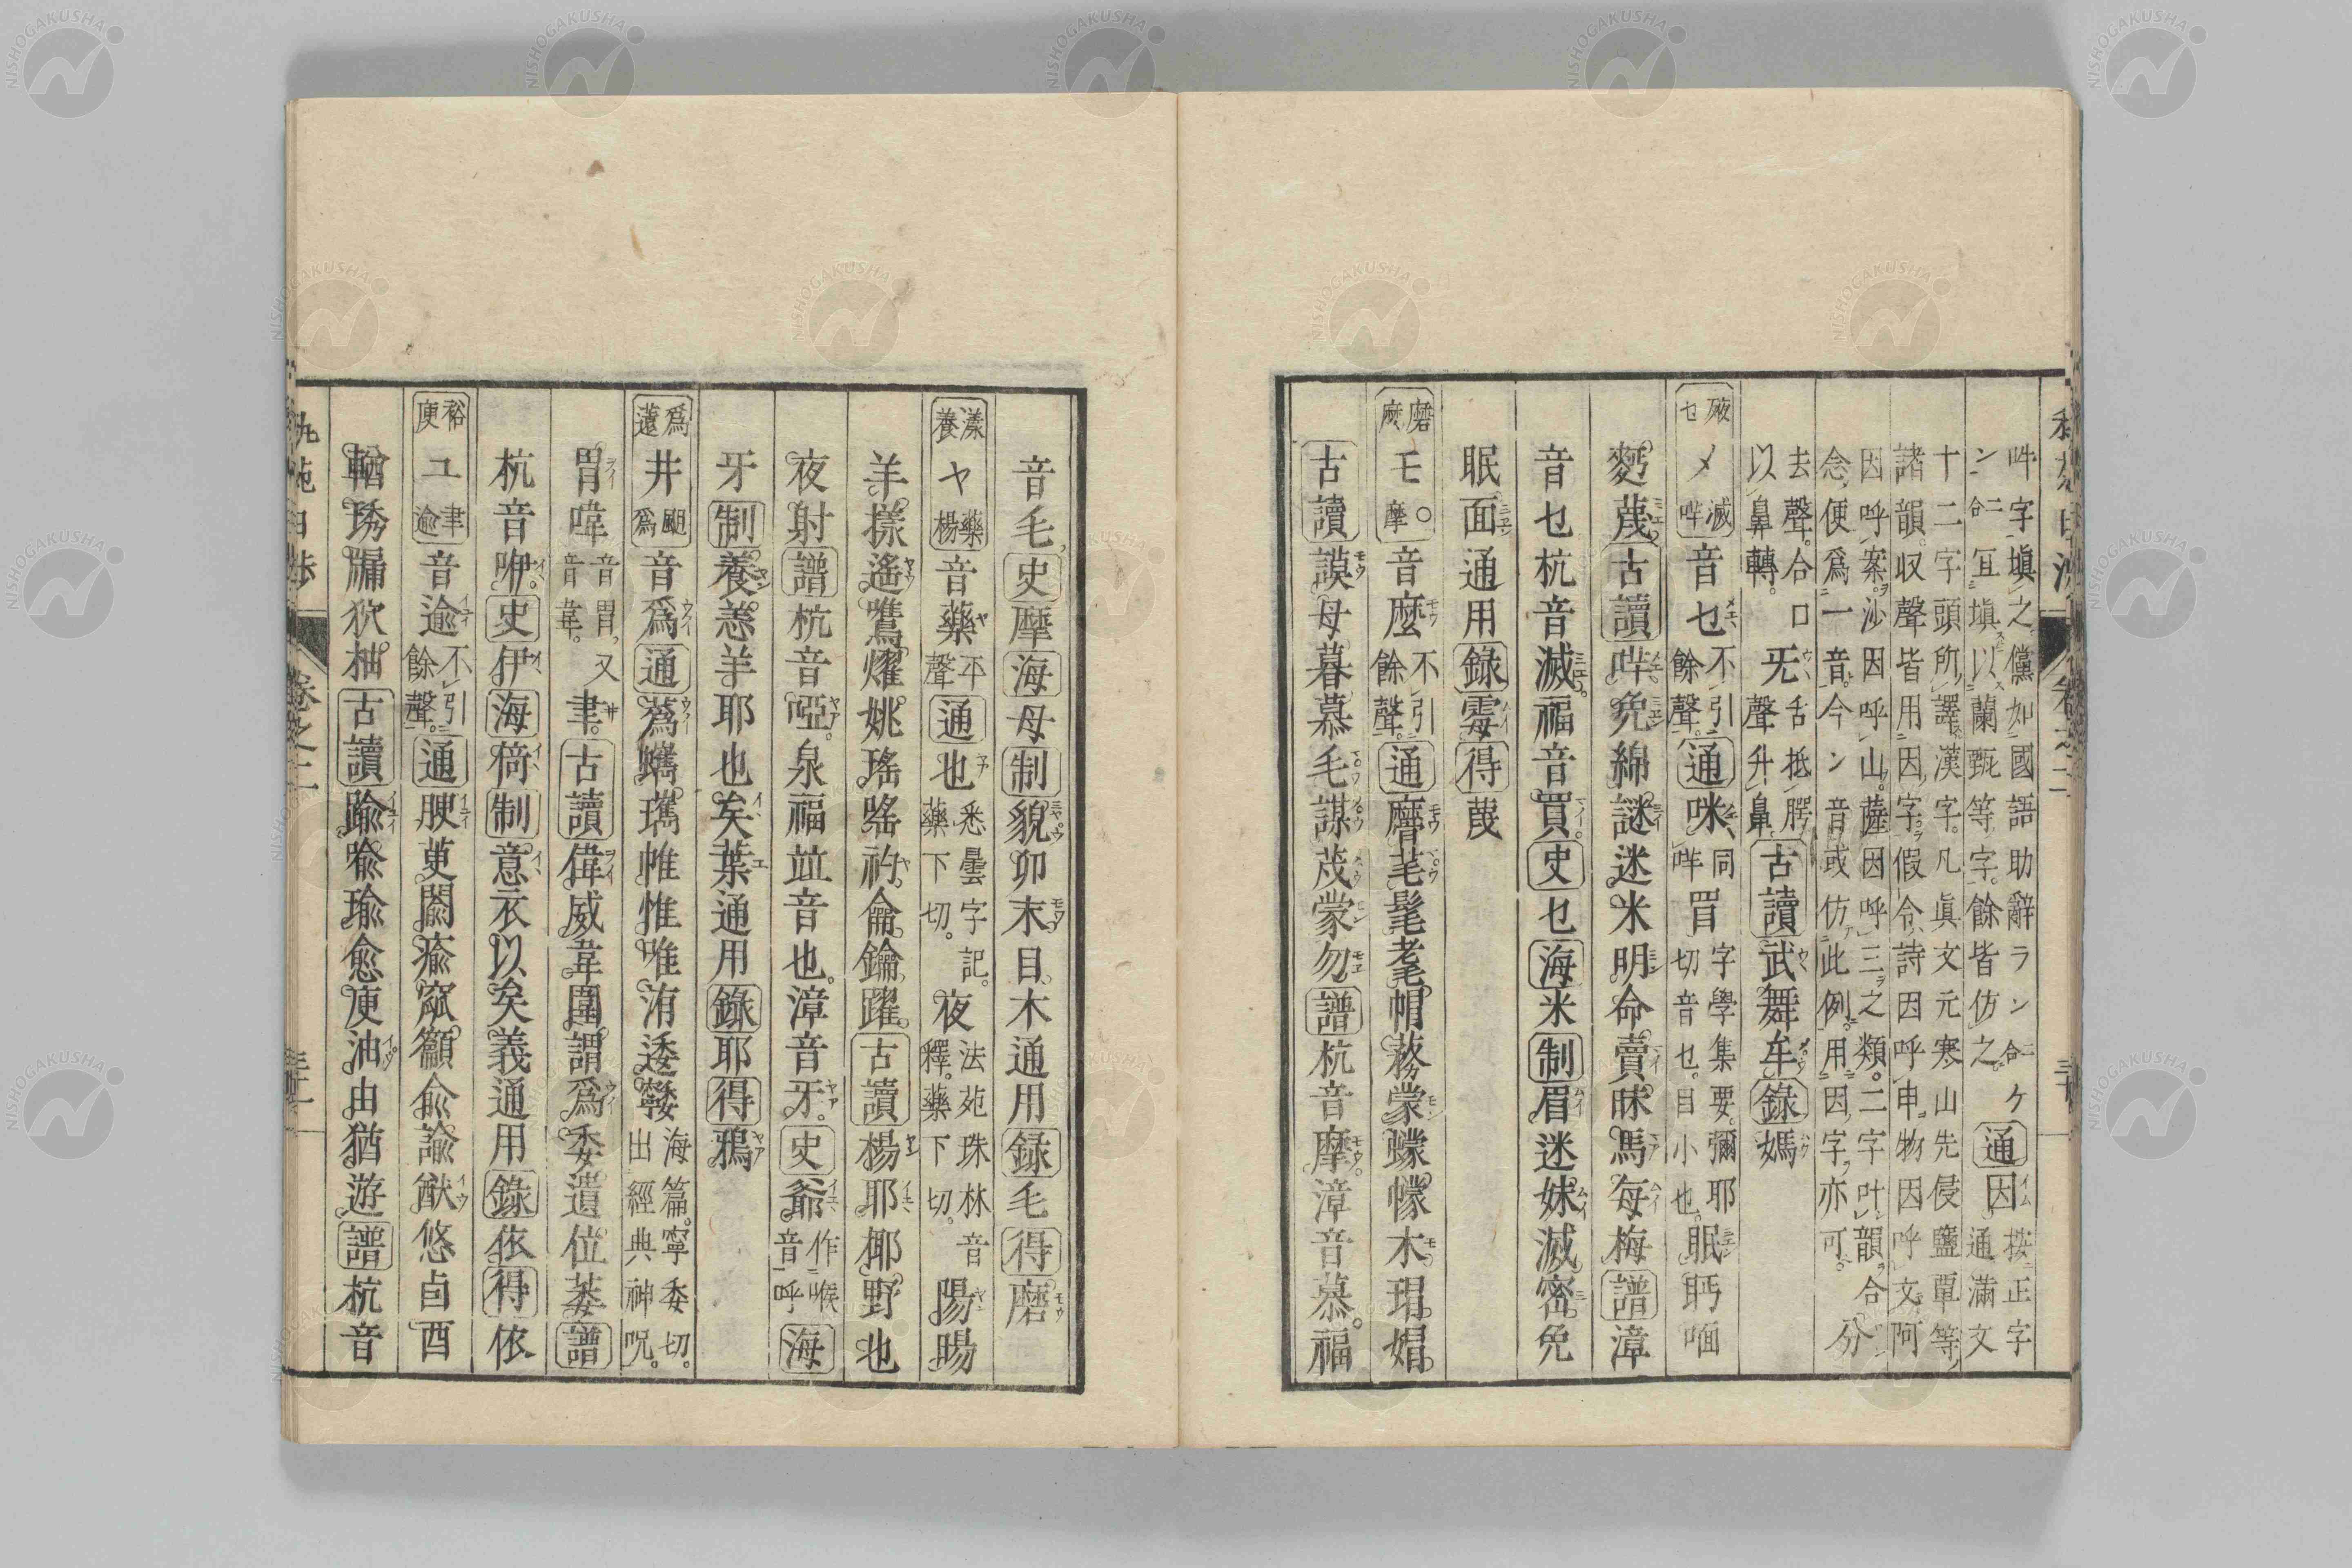 吽字塡之儻如國語助辭ラン合二ケ通因按正字
ン合二宜塡以蘭甄等字餘皆仿之通滿文
十二字頭所譯漢字凡眞文元寒山先侵鹽覃等
諸韻収聲皆用因字假令詩因呼申物因呼文阿
因呼案沙因呼山薩因呼三之類二字叶韻合
念便爲一音今ン音或仿此例用因字亦可分
去聲合口旡舌抵腭古讀武舞牟錄媽
以鼻轉聲升鼻
廠乜メ滅哶音乜不引餘聲通咪同哶冐字學集要彌耶切音乜目小也眠眄喕
麪蔑古讀哶免綿謎迷米明命賣眛馬每梅譜漳
音乜杭音滅福音買史乜海米制眉迷妹滅密免
眠面通用錄雺得蔑
磨麽モ摩音麼不引餘聲通麿芼髦耄帽蓩蒙蠓幪木瑁娼
古讀謨母暮慕毛謀茂蒙勿譜杭音摩漳音慕福
音毛史摩海母制貌卯末目木通用錄毛得磨
漾養ヤ藥楊音藥平聲通也悉曇字記藥下切夜法苑珠林音釋藥下切陽暘
羊㨾遙鷕燿姚瑤嗂礿龠鑰躍古讀楊耶椰野也
夜射譜杭音啞泉福竝音也漳音牙史爺作喉音呼海
牙制養恙羊耶也矣葉通用錄耶得鴉
爲薳井颶爲音爲通蔿蠵瓗帷惟唯洧逶海篇寧委切出經典神呪
胃喡音胃又音韋聿古讀偉威韋圍謂爲委遺位萎譜
杭音咿史伊海猗制意衣以矣義通用錄依得依
裕庾ユ聿逾音逾不引餘聲通腴萸闟瘉窳籲俞諭猷悠卣酉
輶琇牖狖柚古讀踰喻瑜愈庾油由猶遊譜杭音